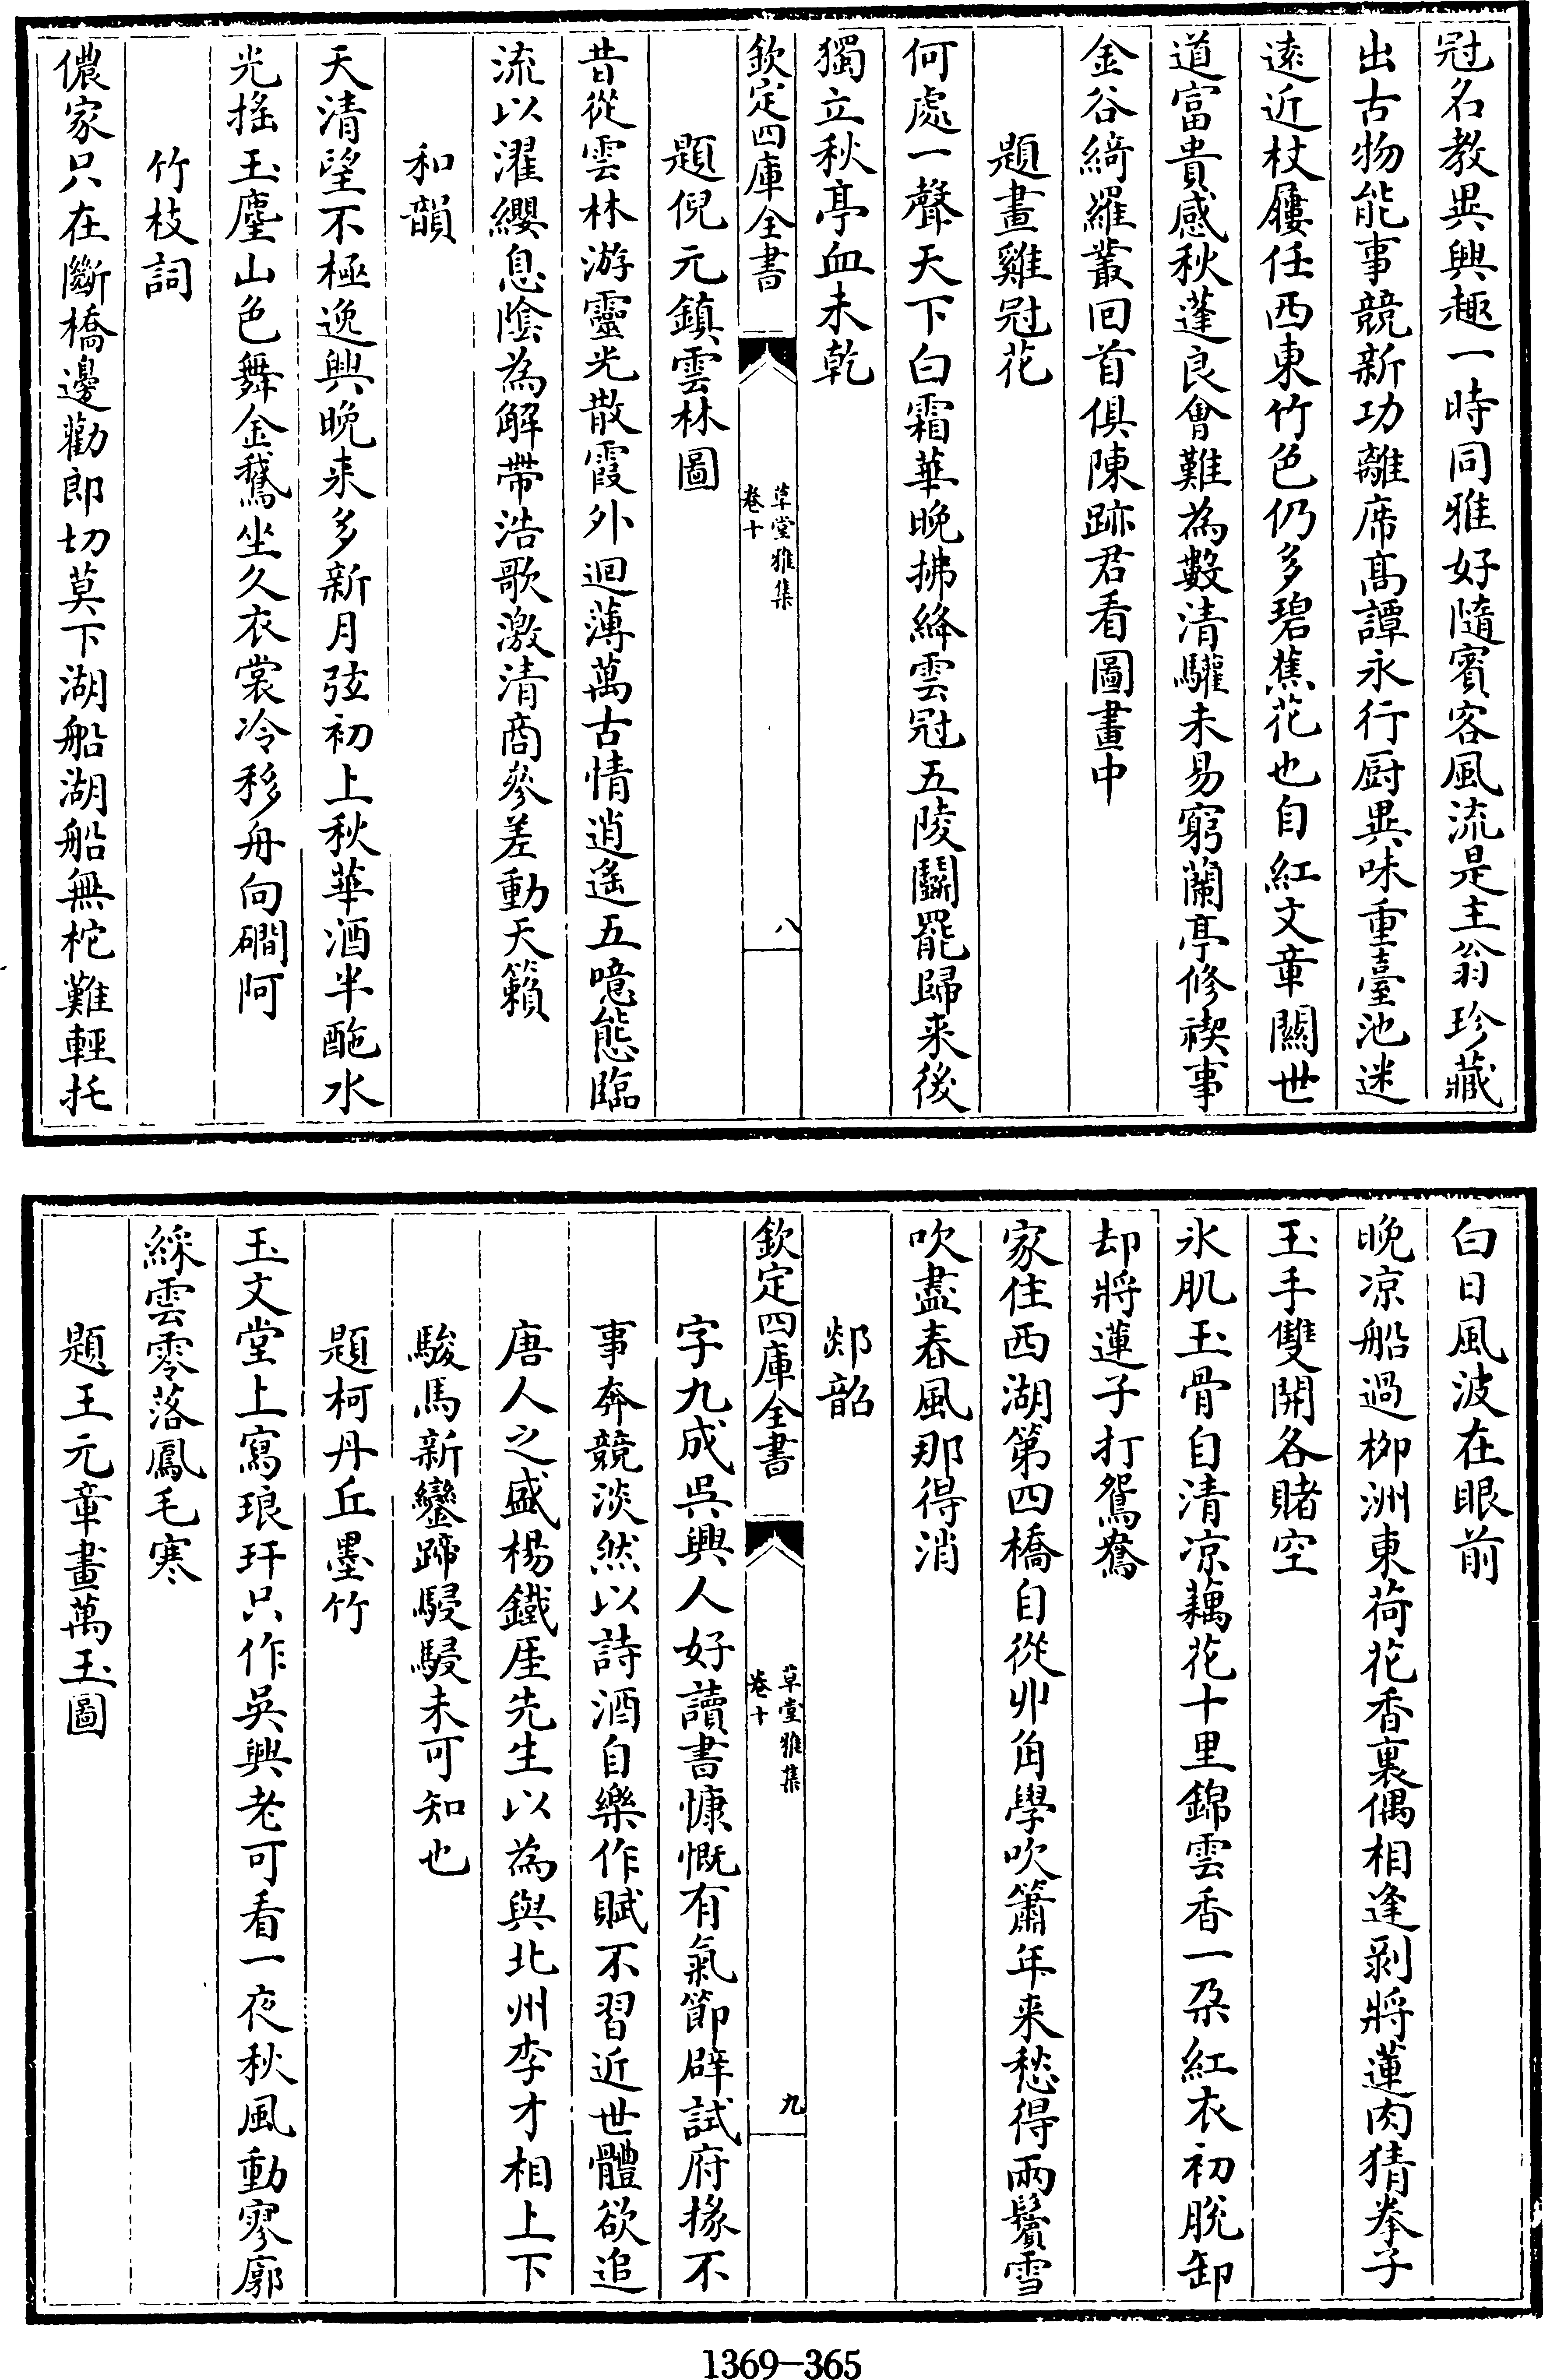 冠名教異興趣一時同雅好隨賓客風流是主翁珍藏
出古物能事競新功離席高譚永行厨異味重臺池迷
遠近杖屨任西東竹色仍多碧蕉花也自紅文章關世
道富貴感秋蓬良會難為數清驩未易窮蘭亭修禊事
金谷綺羅叢回首俱陳跡君看圖畫中
題畫雞冠花
何處一聲天下白霜華晚拂絳雲冠五陵鬭罷歸来後
獨立秋亭血未乾
欽定四庫全書
草堂雅集
卷十
八
題倪元鎮雲林圖
昔從雲林游靈光散霞外迴薄萬古情逍遙五噫態臨
流以濯纓息陰為解帶浩歌激清商參差動天籟
和韻
天清望不極逸興晚来多新月弦初上秋華酒半酏水
光搖玉麈山色舞金鵞坐久衣裳冷移舟向磵阿
竹枝詞
儂家只在斷橋邊勸郎切莫下湖船湖船無柁難輕托
白日風波在眼前
晚凉船過栁洲東荷花香裏偶相逢剥將蓮肉猜拳子
玉手雙開各賭空
氷肌玉骨自清凉藕花十里錦雲香一朶紅衣初脱卸
却將蓮子打鴛鴦
家住西湖第四橋自從丱角學吹簫年来愁得兩鬢雪
吹盡春風那得消
郯韶
欽定四庫全書
草堂雅集
卷十
九
字九成吳興人好讀書慷慨有氣節辟試府掾不
事奔競淡然以詩酒自樂作賦不習近世體欲追
唐人之盛楊鐵厓先生以為與北州李才相上下
駿馬新鑾蹄駸駸未可知也
題柯丹丘墨竹
玉文堂上寫琅玕只作吳興老可看一夜秋風動寥廓
綵雲零落鳳毛寒
題王元章畫萬玉圖
1369—365